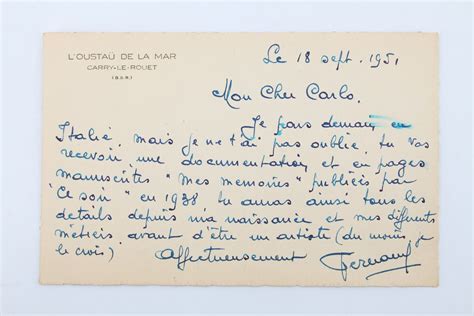 L'OUSTAÙ DE LA MAR
CARRY-LE-ROUET
(B.D.R.)
Le 18 sept. 1951
Mon Cher Carlo.
Je pars demain en
Italie, mais je ne t'ai pas oublié, tu vas
recevoir une documentation et en pages
manuscrites "mes memoires" publiées par
"Ce soir" en 1938, tu auras ainsi tous les
details depuis ma naissance et mes differents
métiers, avant d'être un artiste (du moins je
le crois) Affectueusement Fernand